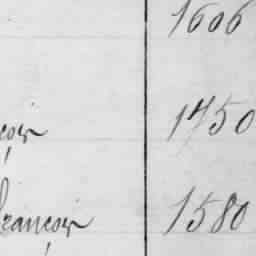 1606
çois 1750
françois 1580